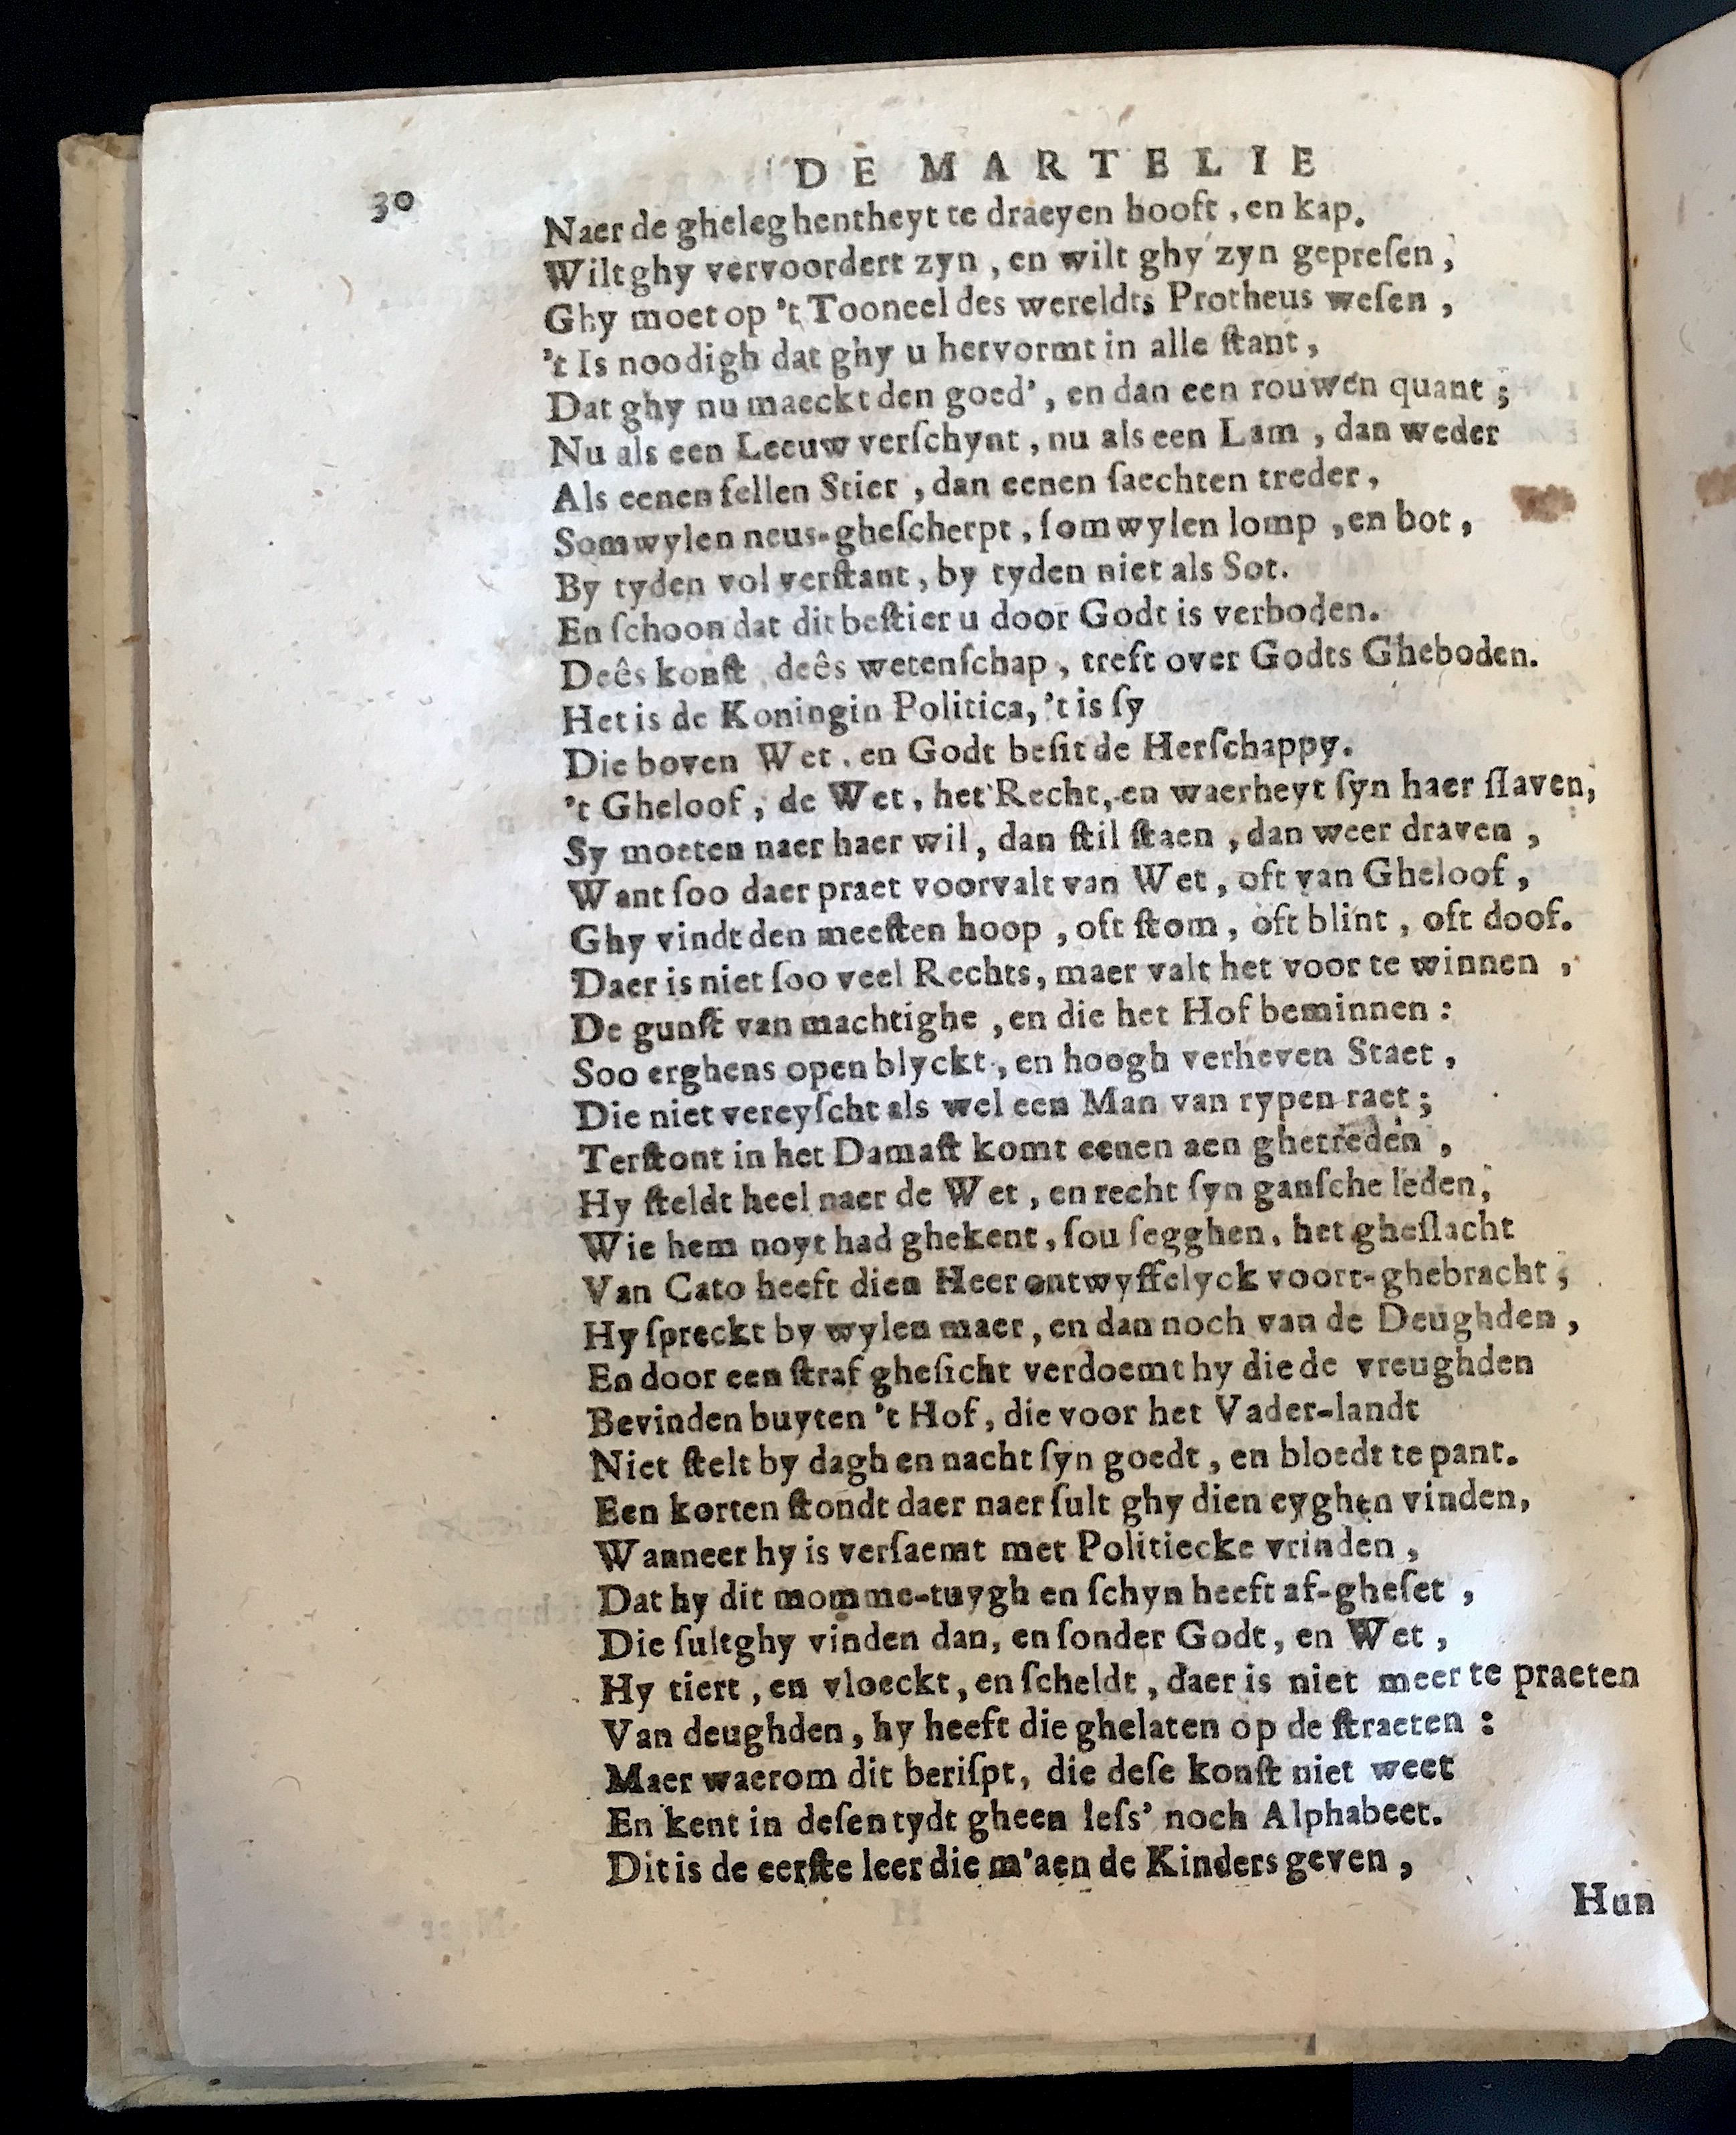 DE MARTELIE
30
Naer de gheleghentheyt te draeyen hooft, en kap.
Wilt ghy vervoordert zyn, en wilt ghy zyn gepreſen,
Ghy moet op 't Tooneel des wereldts Protheus weſen,
't Is noodigh dat ghy u hervormt in alle ſtant,
Dat ghy nu maeckt den goed', en dan een rouwen quant;
Nu als een Leeuw verſchynt, nu als een Lam, dan weder
Als eenen fellen Stier, dan eenen ſaechten treder,
Somwylen neus-gheſcherpt, ſomwylen lomp, en bot,
By tyden vol verſtant, by tyden niet als Sot.
En ſchoon dat dit beſtier u door Godt is verboden.
Deês konſt, deês wetenſchap, treft over Godts Gheboden.
Het is de Koningin Politica, 't is ſy
Die boven Wet, en Godt beſit de Herſchappy.
't Gheloof, de Wet, het Recht, en waerheyt ſyn haer ſlaven,
Sy moeten naer haer wil, dan ſtil ſtaen, dan weer draven,
Want ſoo daer praet voorvalt van Wet, oft van Gheloof,
Ghy vindt den meeſten hoop, oft ſtom, oft blint, oft doof.
Daer is niet ſoo veel Rechts, maer valt het voor te winnen,
De gunſt van machtighe, en die het Hof beminnen:
Soo erghens open blyckt, en hoogh verheven Staet,
Die niet vereyſcht als wel een Man van rypen raet;
Terſtont in het Damaſt komt eenen aen ghetreden,
Hy ſteldt heel naer de Wet, en recht ſyn ganſche leden,
Wie hem noyt had ghekent, ſou ſegghen, het gheſlacht
Van Cato heeft dien Heer ontwyffelyck voort-ghebracht;
Hy ſpreckt by wylen maer, en dan noch van de Deughden,
En door een ſtraf gheſicht verdoemt hy die de vreughden
Bevinden buyten 't Hof, die voor het Vader-landt
Niet ſtelt by dagh en nacht ſyn goedt, en bloedt te pant.
Een korten ſtondt daer naer ſult ghy dien eyghen vinden,
Wanneer hy is verſaemt met Politiecke vrinden,
Dat hy dit momme-tuygh en ſchyn heeft af-gheſet,
Die ſult ghy vinden dan, en ſonder Godt, en Wet,
Hy tiert, en vloeckt, en ſcheldt, daer is niet meer te praeten
Van deughden, hy heeft die ghelaten op de ſtraeten:
Maer waerom dit beriſpt, die deſe konſt niet weet
En kent in deſen tydt gheen leſs' noch Alphabeet.
Dit is de eerſte leer die m'aen de Kinders geven,
Hun